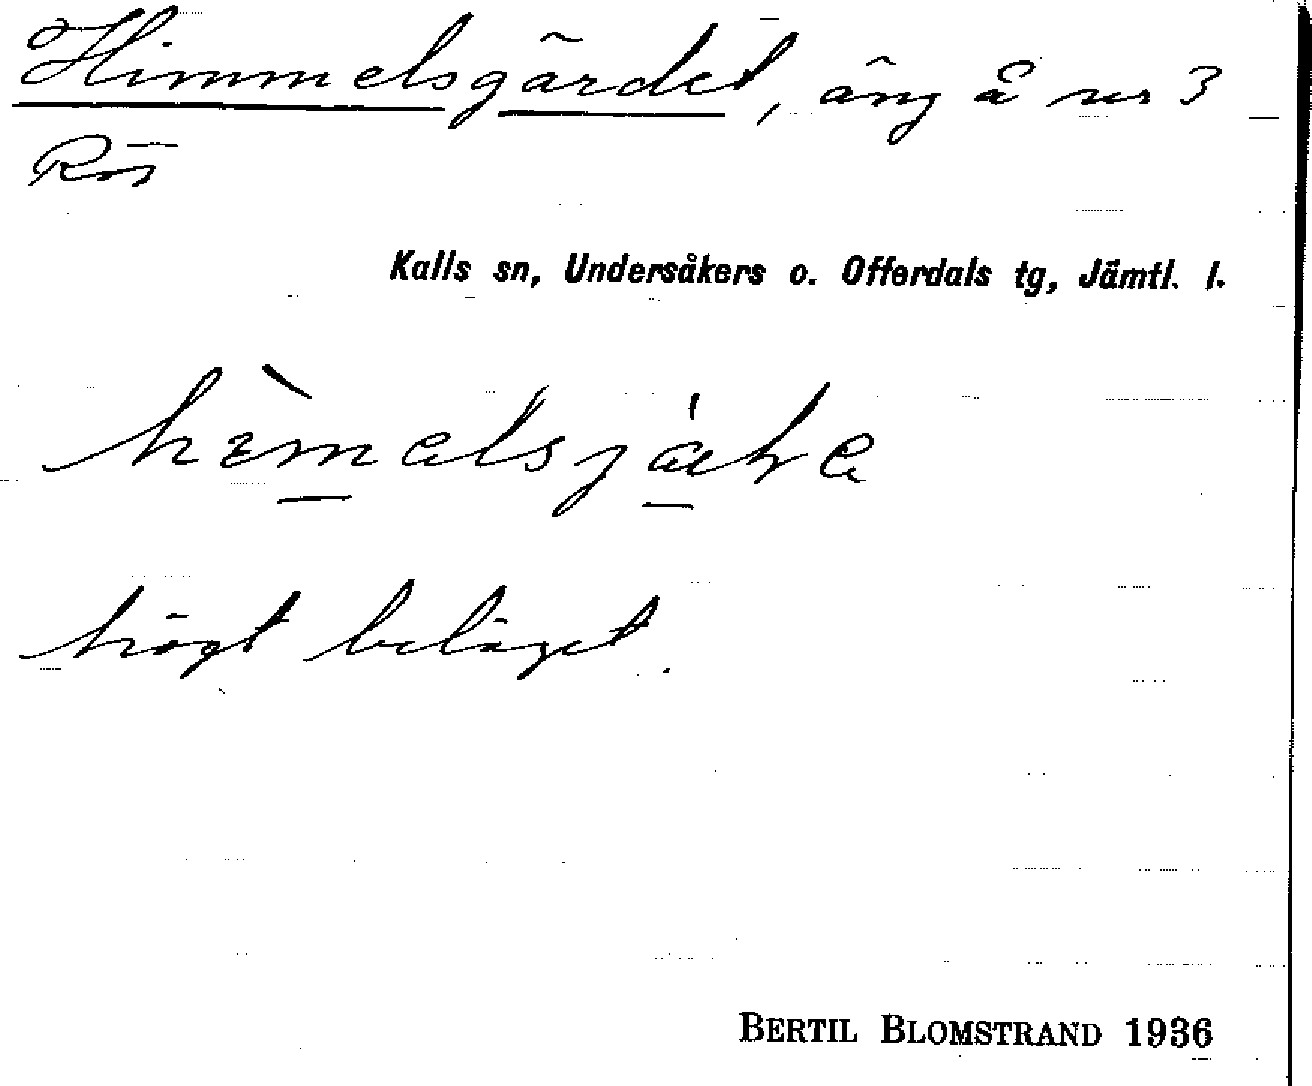 Himmelsgärdet, äng å nr 3
Rös
Kalls sn, Undersåkers o. Offerdals tg, Jämtl. l.
högt beläget.
BERTIL BLOMSTRAND 1936